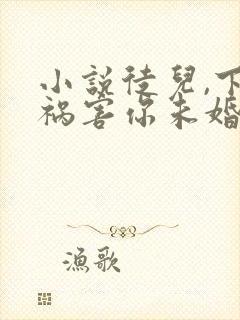 小説徒兒,下
禍害你未婚
漁歌